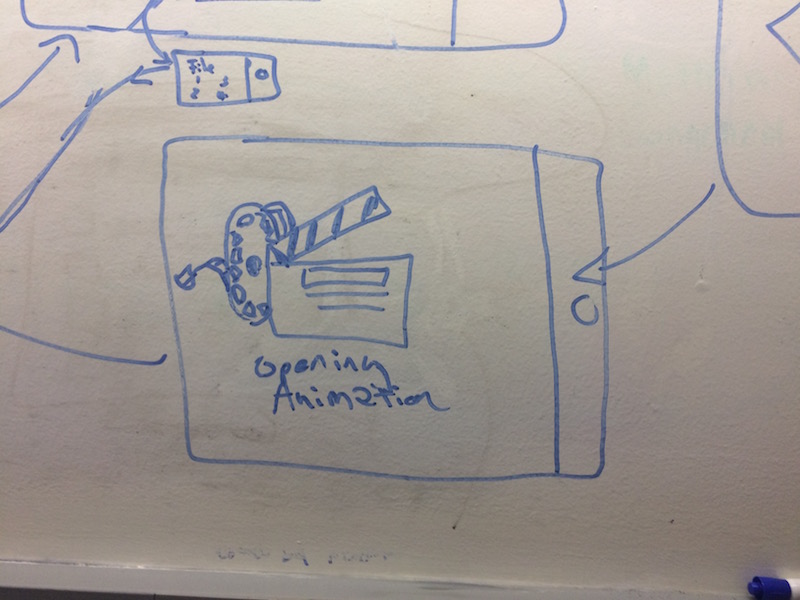 File
1 3
2 4
Opening
Animation